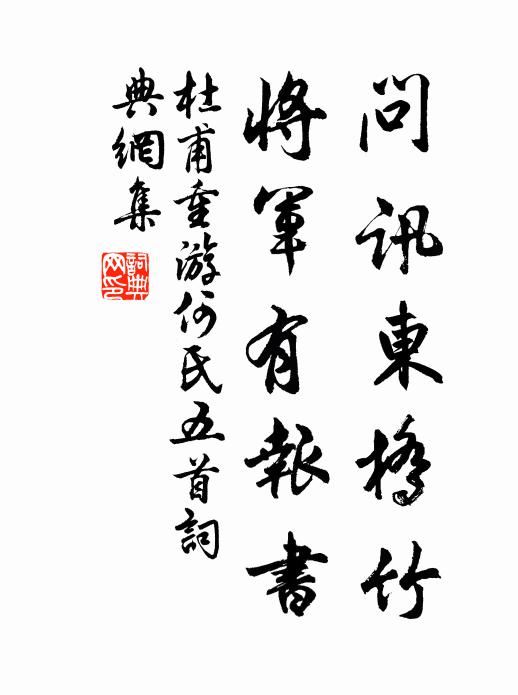 問訊東橋竹
將軍有報書
杜甫重游何氏五首詞
典網集
詞典
网印